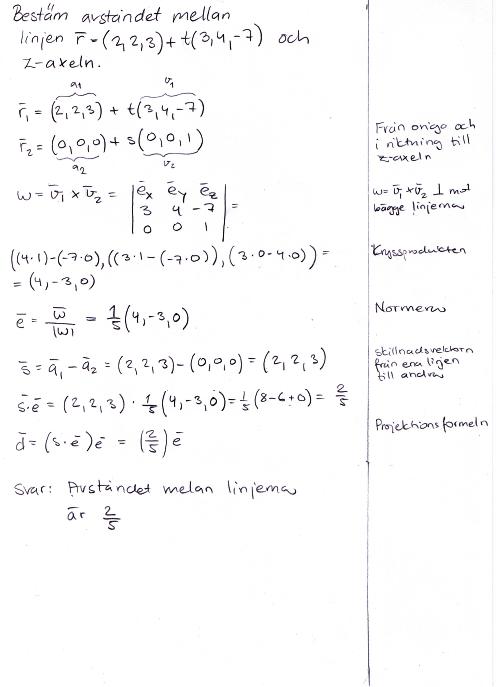 Bestäm avståndet mellan
linjen r̄ = (2,2,3) + t(3,4,-7) och
z-axeln.
a₁ v₁
r̄₁ = (2,2,3) + t(3,4,-7)
r̄₂ = (0,0,0) + s(0,0,1)
a₂ v₂
Från origo och
i riktning till
z-axeln
w = v̄₁ × v̄₂ = | ēx ēy ēz |
| 3 4 -7 | =
| 0 0 1 |
w = v̄₁ × v̄₂ ⊥ mot
bägge linjerna
((4·1)-(-7·0), ((3·1-(-7·0)), (3·0-4·0)) =
= (4,-3,0)
Kryssprodukten
ē = w̄/|w| = 1/5 (4,-3,0)
Normera
s̄ = ā₁ - ā₂ = (2,2,3) - (0,0,0) = (2,2,3)
skillnadsvektorn
från ena linjen
till andra
s̄·ē = (2,2,3) · 1/5 (4,-3,0) = 1/5 (8-6+0) = 2/5
d̄ = (s·ē)ē = (2/5) ē
Projektionsformeln
Svar: Avståndet melan linjerna
är 2/5